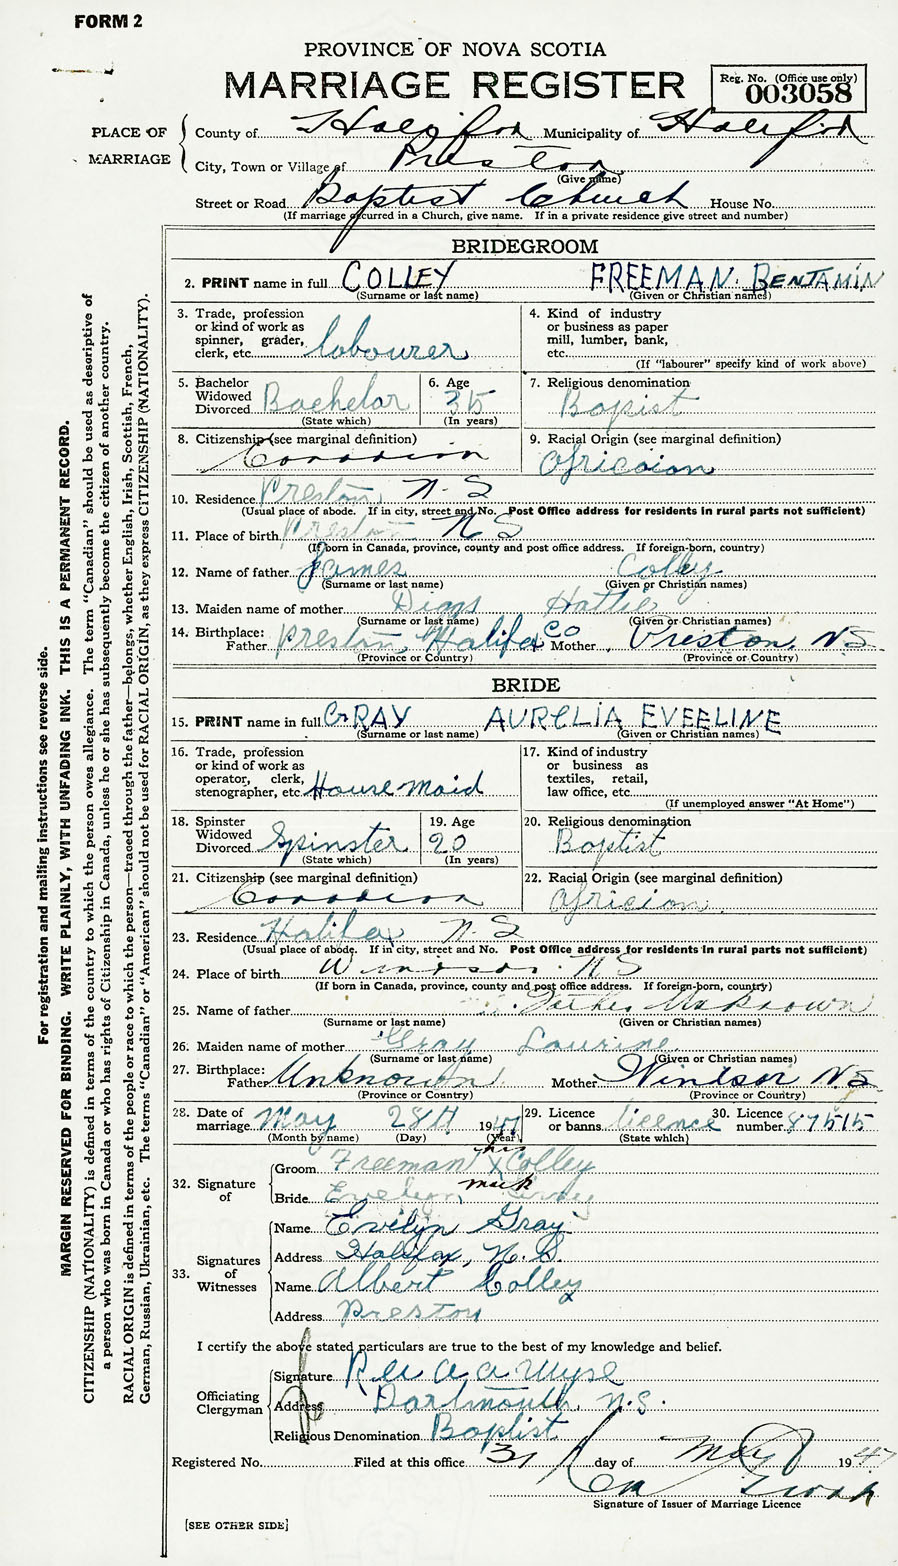 FORM 2
PROVINCE OF NOVA SCOTIA
MARRIAGE REGISTER
Reg. No. (Office use only)
003058
PLACE OF MARRIAGE
County of Halifax Municipality of Halifax
City, Town or Village of Preston
(Give name)
Street or Road Baptist Church House No.
(If marriage occurred in a Church, give name. If in a private residence give street and number)
BRIDEGROOM
2. PRINT name in full COLLEY FREEMAN BENJAMIN
(Surname or last name) (Given or Christian names)
3. Trade, profession or kind of work as spinner, grader, clerk, etc. labourer
4. Kind of industry or business as paper mill, lumber, bank, etc.
(If "labourer" specify kind of work above)
5. Bachelor Widowed Divorced Bachelor
(State which)
6. Age 35
(In years)
7. Religious denomination Bapist
8. Citizenship (see marginal definition) Canadian
9. Racial Origin (see marginal definition) Africaian
10. Residence Preston, N-S
(Usual place of abode. If in city, street and No. Post Office address for residents in rural parts not sufficient)
11. Place of birth Preston N S
(If born in Canada, province, county and post office address. If foreign-born, country)
12. Name of father James Colley
(Surname or last name) (Given or Christian names)
13. Maiden name of mother Diggs Hattie
(Surname or last name) (Given or Christian names)
14. Birthplace: Father Preston, Halifax Co Mother Preston, N.S.
(Province or Country) (Province or Country)
BRIDE
15. PRINT name in full GRAY AURELIA EVEELINE
(Surname or last name) (Given or Christian names)
16. Trade, profession or kind of work as operator, clerk, stenographer, etc. House maid
17. Kind of industry or business as textiles, retail, law office, etc.
(If unemployed answer "At Home")
18. Spinster Widowed Divorced Spinster
(State which)
19. Age 20
(In years)
20. Religious denomination Baptist
21. Citizenship (see marginal definition) Canadian
22. Racial Origin (see marginal definition) Africian
23. Residence Halifax N-S
(Usual place of abode. If in city, street and No. Post Office address for residents in rural parts not sufficient)
24. Place of birth Windsor N S
(If born in Canada, province, county and post office address. If foreign-born, country)
25. Name of father Father Unknown
(Surname or last name) (Given or Christian names)
26. Maiden name of mother Gray Laurine
(Surname or last name) (Given or Christian names)
27. Birthplace: Father Unknown Mother Windsor N S
(Province or Country) (Province or Country)
28. Date of marriage May 28th 1947
(Month by name) (Day) (Year)
29. Licence or banns licence
(State which)
30. Licence number 87515
32. Signature of
Groom Freeman his X Colley
Bride Evelyn mark Gray
33. Signatures of Witnesses
Name Evilyn Gray
Address Halifax, N.S.
Name Albert Colley
Address Preston
I certify the above stated particulars are true to the best of my knowledge and belief.
Officiating Clergyman
Signature Rev A A Wyse
Address Dartmouth, N.S.
Religious Denomination Baptist
Registered No. Filed at this office 31 day of May 1947
Signature of Issuer of Marriage Licence
[SEE OTHER SIDE]
For registration and mailing instructions see reverse side.
MARGIN RESERVED FOR BINDING. WRITE PLAINLY, WITH UNFADING INK. THIS IS A PERMANENT RECORD.
CITIZENSHIP (NATIONALITY) is defined in terms of the country to which the person owes allegiance. The term "Canadian" should be used as descriptive of
a person who was born in Canada or who has rights of Citizenship in Canada, unless he or she has subsequently become the citizen of another country.
RACIAL ORIGIN is defined in terms of the people or race to which the person—traced through the father—belongs, whether English, Irish, Scottish, French,
German, Russian, Ukrainian, etc. The terms "Canadian" or "American" should not be used for RACIAL ORIGIN, as they express CITIZENSHIP (NATIONALITY).